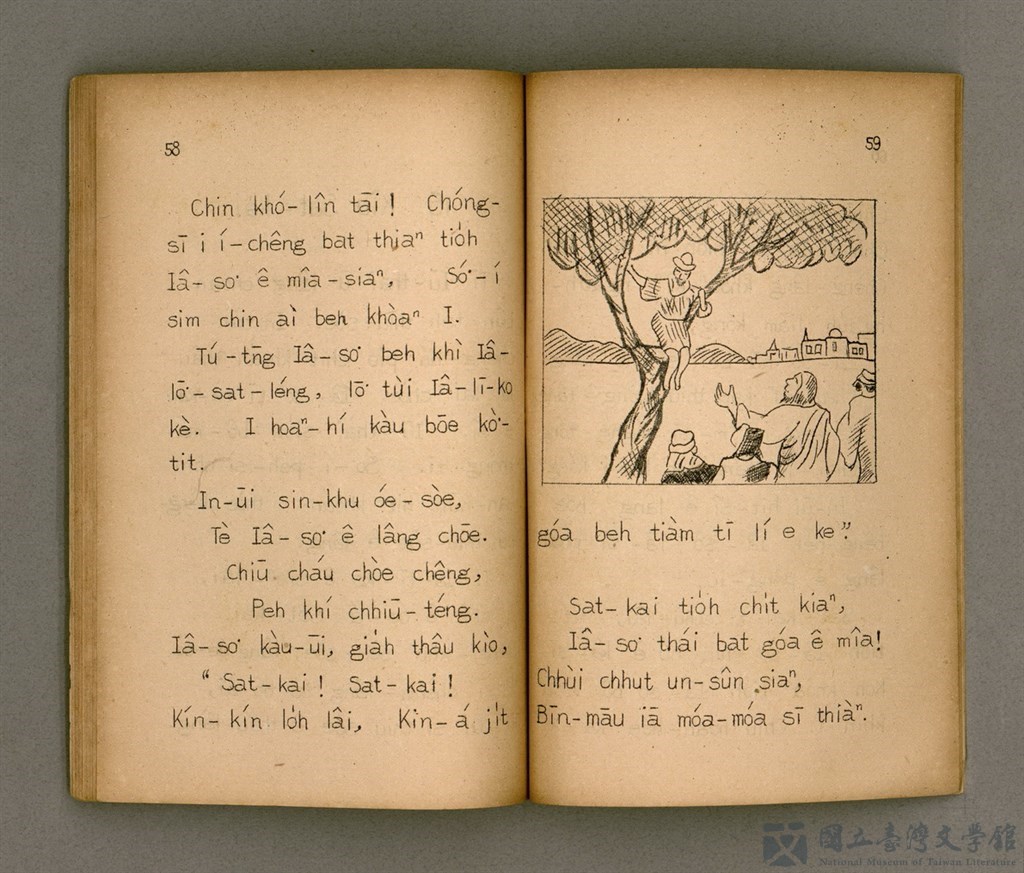 58
Chin khó-lîn tāi! Chóng-
sī i í-chêng bat thiaⁿ tio̍h
Iâ-so͘ ê mîa-siaⁿ, Só͘-í
sim chin ài beh khòaⁿ I.
Tú-tn̄g Iâ-so͘ beh khì Iâ-
lō͘-sat-léng, lō͘ tùi Iâ-lī-ko
kè. I hoaⁿ-hí kàu bōe kò͘-
tit.
In-ūi sin-khu óe-sòe,
Tè Iâ-so͘ ê lâng chōe.
Chiū cháu chòe chêng,
Peh khí chhiū-téng.
Iâ-so͘ kàu-ūi, gia̍h thâu kìo,
“Sat-kai! Sat-kai!
Kín-kín lo̍h lâi, Kin-á ji̍t
59
góa beh tiàm tī lí e ke”.
Sat-kai tio̍h chi̍t kiaⁿ,
Iâ-so͘ thái bat góa ê mîa!
Chhùi chhut un-sûn siaⁿ,
Bīn-māu iā móa-móa sī thiàⁿ.
國立臺灣文學館
National Museum of Taiwan Literature